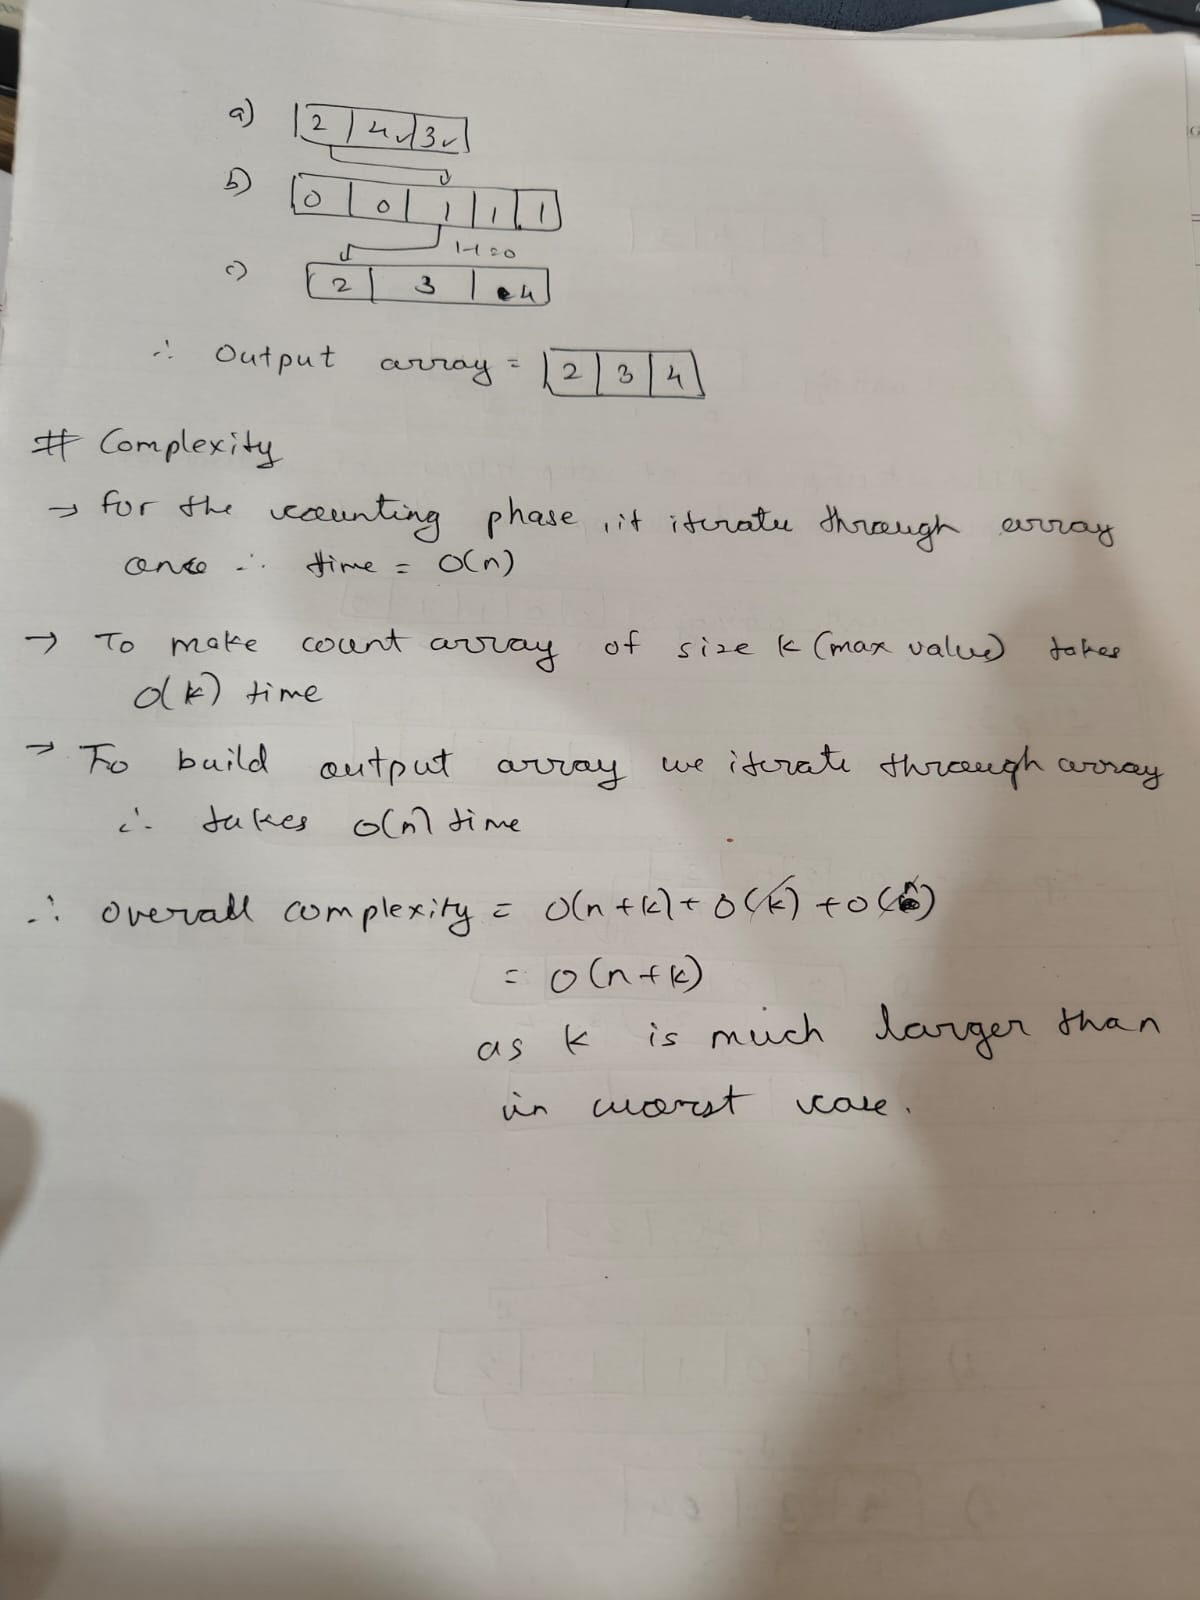 a) 2 4 3
b) 0 0 1 1 1
1-1=0
c) 2 3 4
∴ Output array = 2 3 4
# Complexity
→ for the counting phase, it iterate through array
once ∴ time = O(n)
→ To make count array of size k (max value) takes
O(k) time
→ To build output array we iterate through array
∴ takes O(n) time
∴ overall complexity = O(n+k) + O(k) + O(n)
= O(n+k)
as k is much larger than
in worst case.